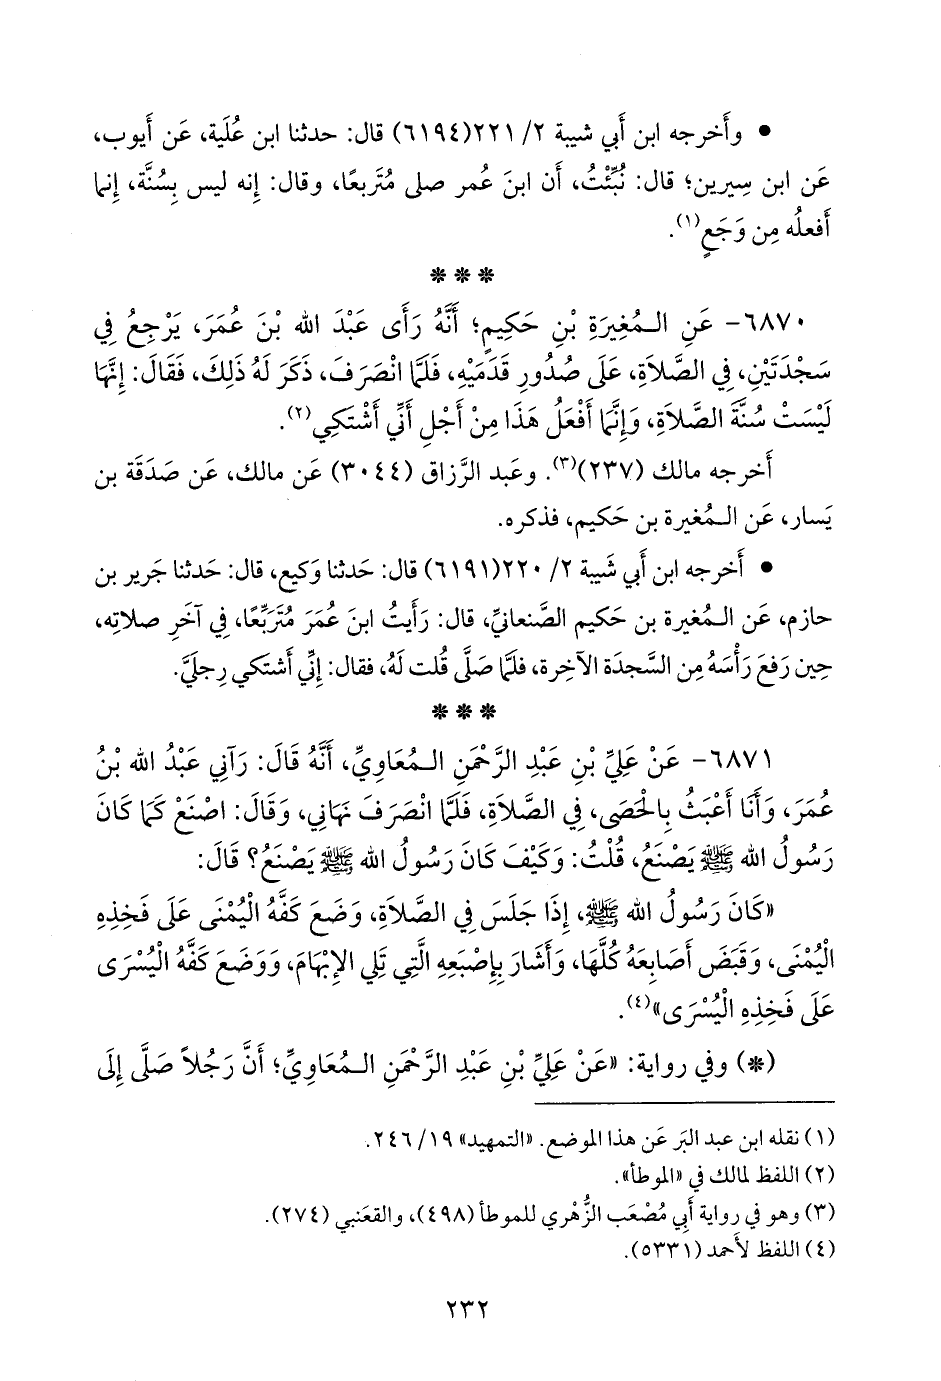 • وأَخرجه ابن أَبي شيبة ٢/ ٢٢١(٦١٩٤) قال: حدثنا ابن عُلَية، عَن أَيوب،
عَن ابن سِيرين؛ قال: نُبِّئْتُ، أَن ابنَ عُمر صلى مُتَربعًا، وقال: إِنه ليس بِسُنَّة، إِنما
أَفعلُه مِن وَجَعٍ(١).
* * *
٦٨٧٠- عَنِ الـمُغِيرَةِ بْنِ حَكِيمٍ؛ أَنَّهُ رَأَى عَبْدَ الله بْنَ عُمَرَ، يَرْجِعُ فِي
سَجْدَتَيْنِ، فِي الصَّلَاةِ، عَلَى صُدُورِ قَدَمَيْهِ، فَلَمَّا انْصَرَفَ، ذَكَرَ لَهُ ذَلِكَ، فَقَالَ: إِنَّهَا
لَيْسَتْ سُنَّةَ الصَّلَاةِ، وَإِنَّمَا أَفْعَلُ هَذَا مِنْ أَجْلِ أَنِّي أَشْتَكِي(٢).
أَخرجه مالك (٢٣٧)(٣). وعَبد الرَّزاق (٣٠٤٤) عَن مالك، عَن صَدَقَة بن
يَسار، عَن الـمُغيرة بن حَكيم، فذكره.
• أَخرجه ابن أَبي شَيبة ٢/ ٢٢٠(٦١٩١) قال: حَدثنا وَكيع، قال: حَدثنا جَرير بن
حازم، عَن الـمُغيرة بن حَكيم الصَّنعانيِّ، قال: رَأَيتُ ابنَ عُمَرَ مُتَرَبِّعًا، فِي آخَرِ صلاتِه،
حِين رَفعَ رَأْسَهُ مِن السَّجدَة الآخِرة، فلمَّا صَلَّى قُلت لَهُ، فقال: إِنِّي أَشتَكي رِجلَيَّ.
* * *
٦٨٧١- عَنْ عَلِيِّ بْنِ عَبْدِ الرَّحْمَنِ الـمُعَاوِيِّ، أَنَّهُ قَالَ: رَآنِي عَبْدُ الله بْنُ
عُمَرَ، وَأَنَا أَعْبَثُ بِالْحَصَى، فِي الصَّلَاةِ، فَلَمَّا انْصَرَفَ نَهَانِي، وَقَالَ: اصْنَعْ كَمَا كَانَ
رَسُولُ الله ﷺ يَصْنَعُ، قُلْتُ: وَكَيْفَ كَانَ رَسُولُ الله ﷺ يَصْنَعُ؟ قَالَ:
«كَانَ رَسُولُ الله ﷺ، إِذَا جَلَسَ فِي الصَّلَاةِ، وَضَعَ كَفَّهُ الْيُمْنَى عَلَى فَخِذِهِ
الْيُمْنَى، وَقَبَضَ أَصَابِعَهُ كُلَّهَا، وَأَشَارَ بِإِصْبَعِهِ الَّتِي تَلِي الإِبْهَامَ، وَوَضَعَ كَفَّهُ الْيُسْرَى
عَلَى فَخِذِهِ الْيُسْرَى»(٤).
(*) وفي رواية: «عَنْ عَلِيِّ بْنِ عَبْدِ الرَّحْمَنِ الـمُعَاوِيِّ؛ أَنَّ رَجُلاً صَلَّى إِلَى
(١) نقله ابن عبد البَر عَن هذا الموضع. «التمهيد» ١٩/ ٢٤٦.
(٢) اللفظ لمالك في «الموطأ».
(٣) وهو في رواية أَبي مُصْعَب الزُّهْري للموطأ (٤٩٨)، والقعَنبي (٢٧٤).
(٤) اللفظ لأَحمد (٥٣٣١).
٢٣٢